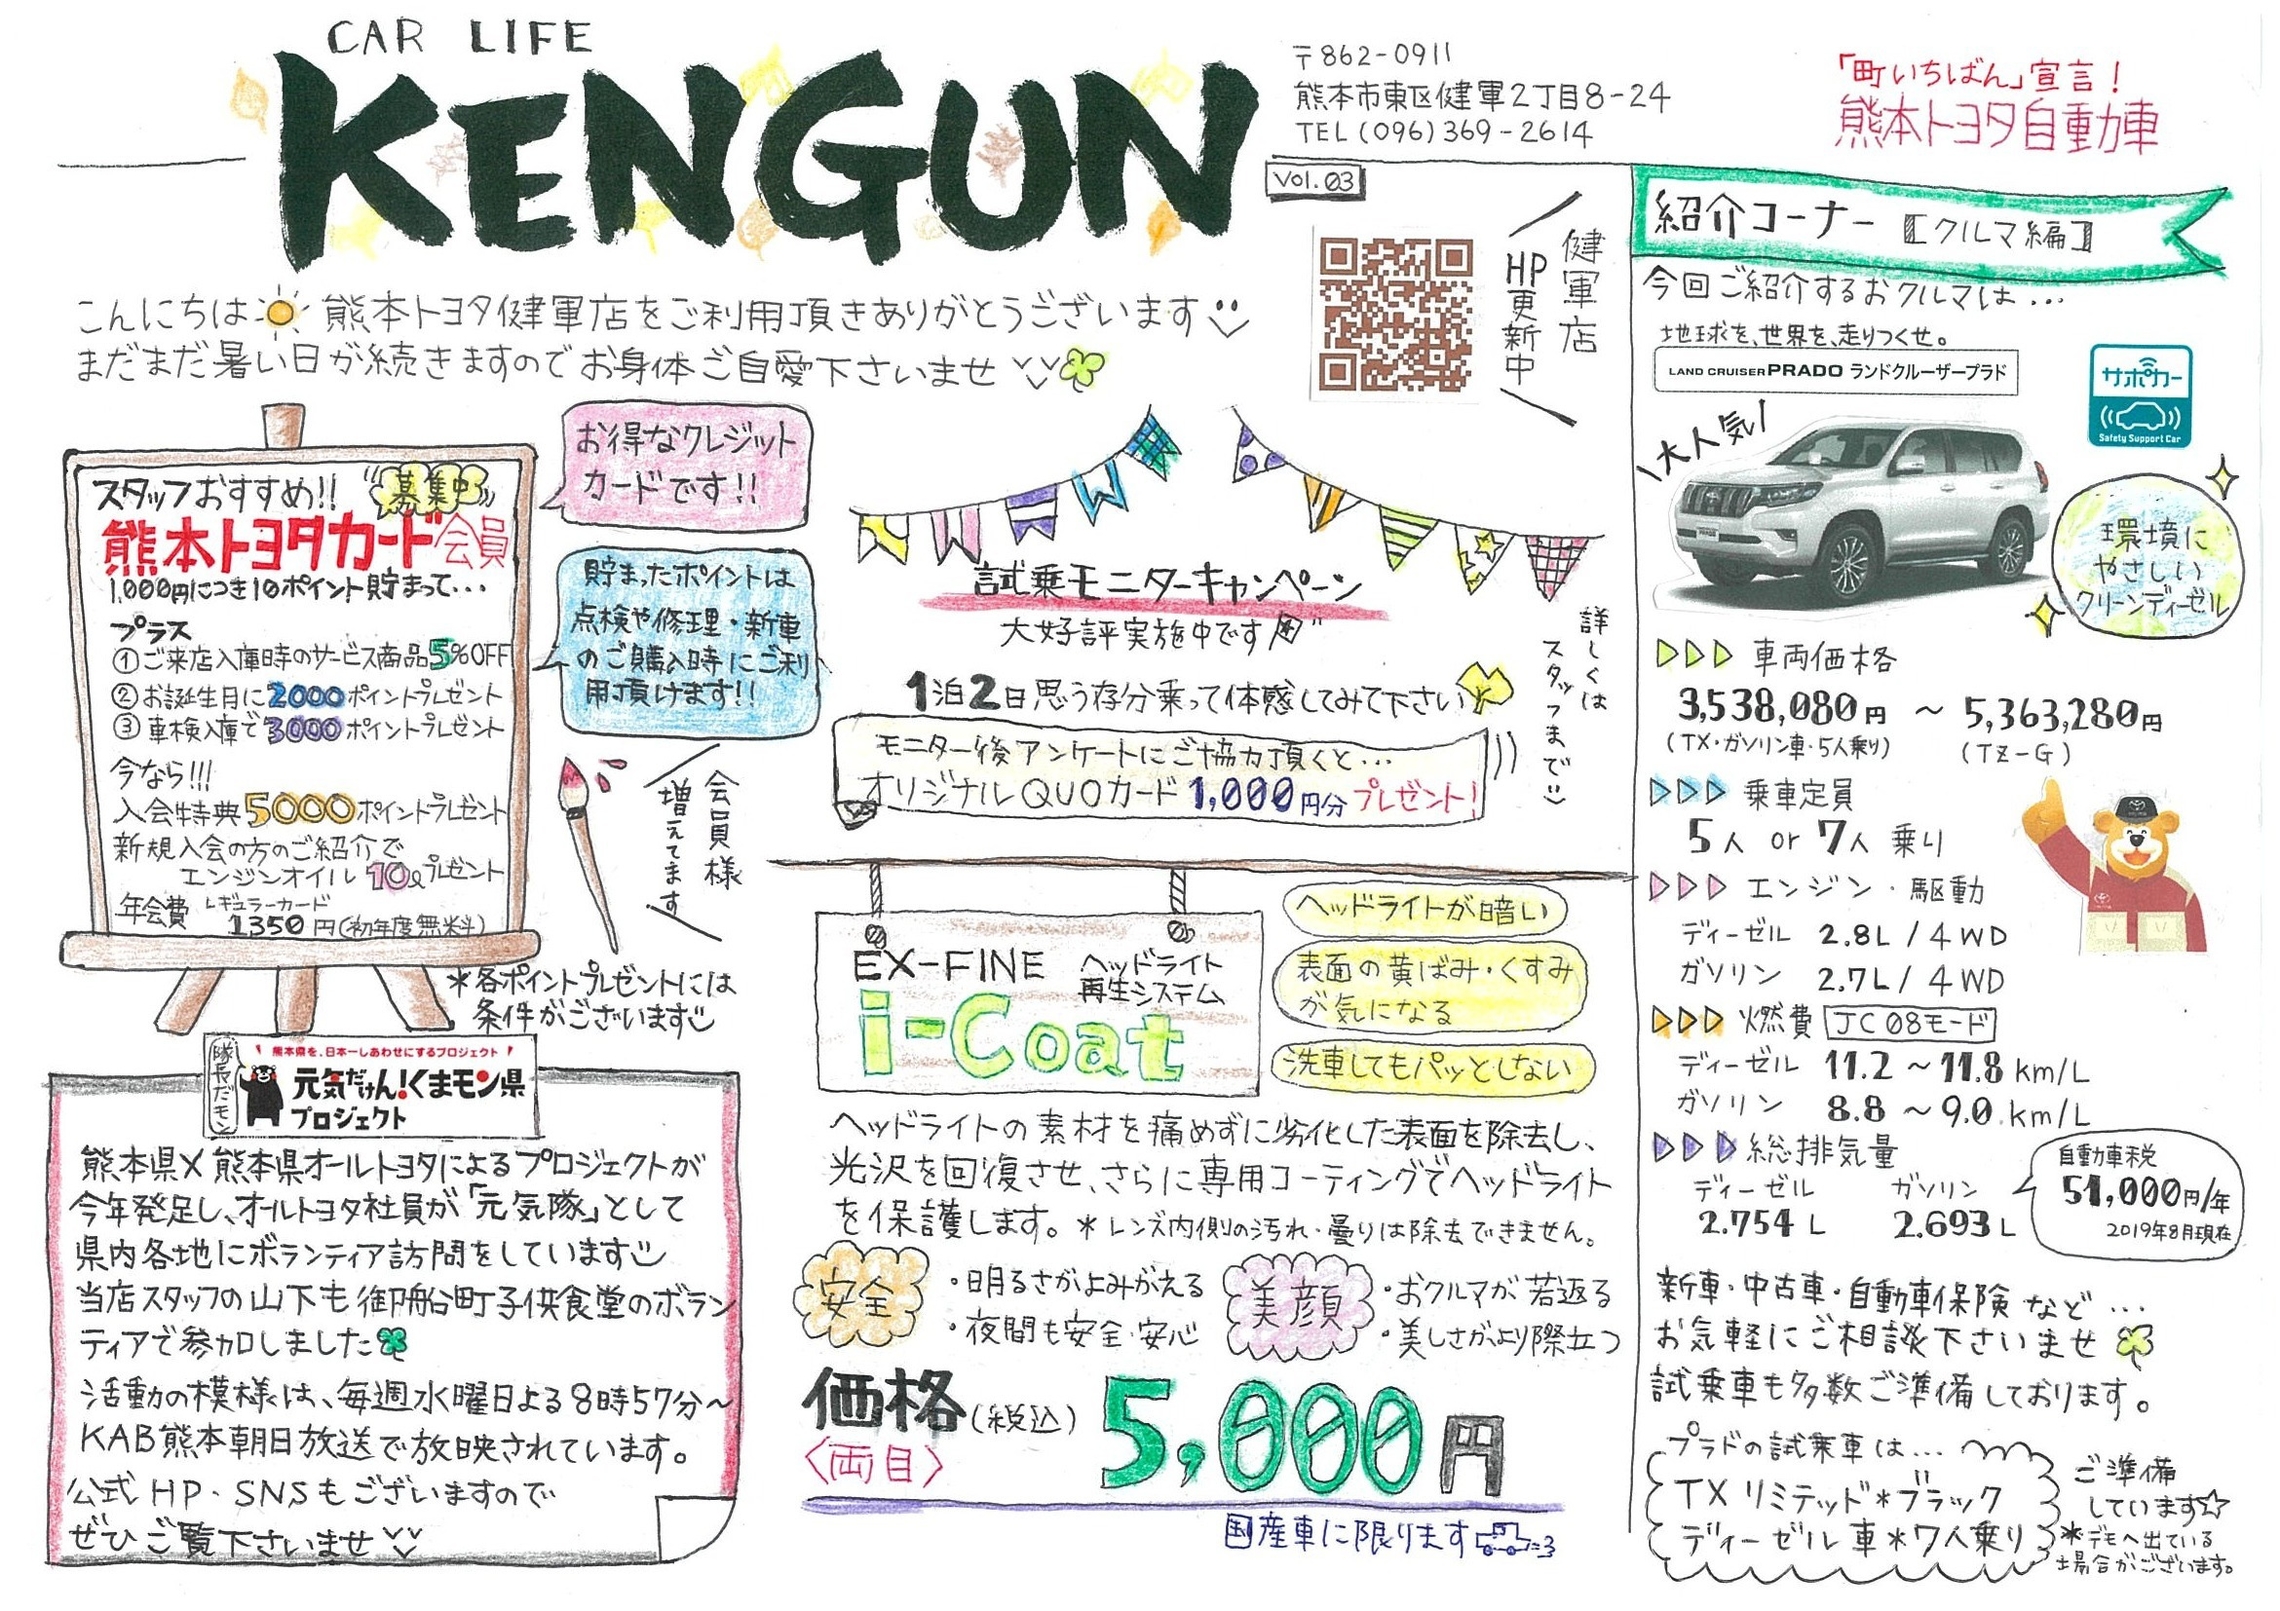 CAR LIFE
KENGUN
〒862-0911
熊本市東区健軍2丁目8-24
TEL(096)369-2614
「町いちばん」宣言！
熊本トヨタ自動車
Vol.03
健軍店
HP更新中
こんにちは 熊本トヨタ健軍店をご利用頂きありがとうございます
まだまだ暑い日が続きますのでお身体ご自愛下さいませ
スタッフおすすめ!!
募集中
熊本トヨタカード会員
1,000円につき10ポイント貯まって…
プラス
①ご来店入庫時のサービス商品5%OFF
②お誕生月に2000ポイントプレゼント
③車検入庫で3000ポイントプレゼント
今なら!!!
入会特典5000ポイントプレゼント
新規入会の方のご紹介で
エンジンオイル10ℓプレゼント
年会費 レギュラーカード
1350円(初年度無料)
お得なクレジット
カードです!!
貯まったポイントは
点検や修理・新車
のご購入時にご利
用頂けます!!
会員様
増えてます
*各ポイントプレゼントには
条件がございます
隊長だモン
熊本県を、日本一しあわせにするプロジェクト
元気だけん！くまモン県
プロジェクト
熊本県×熊本県オールトヨタによるプロジェクトが
今年発足し、オールトヨタ社員が「元気隊」として
県内各地にボランティア訪問をしています
当店スタッフの山下も御船町子供食堂のボラン
ティアで参加しました
活動の模様は、毎週水曜日よる8時57分～
KAB熊本朝日放送で放映されています。
公式HP・SNSもございますので
ぜひご覧下さいませ
試乗モニターキャンペーン
大好評実施中です
1泊2日思う存分乗って体感してみて下さい
モニター後アンケートにご協力頂くと…
オリジナルQUOカード1,000円分プレゼント!
詳しくは
スタッフまで
EX-FINE ヘッドライト
再生システム
i-Coat
ヘッドライトが暗い
表面の黄ばみ・くすみ
が気になる
洗車してもパッとしない
ヘッドライトの素材を痛めずに劣化した表面を除去し、
光沢を回復させ、さらに専用コーティングでヘッドライト
を保護します。*レンズ内側の汚れ・曇りは除去できません。
安全
・明るさがよみがえる
・夜間も安全・安心
美顔
・おクルマが若返る
・美しさがより際立つ
価格(税込) 5,000円
〈両目〉
国産車に限ります
紹介コーナー【クルマ編】
今回ご紹介するおクルマは…
地球を、世界を、走りつくせ。
LAND CRUISER PRADO ランドクルーザープラド
サポカー
Safety Support Car
大人気
環境に
やさしい
クリーンディーゼル
車両価格
3,538,080円 ～ 5,363,280円
(TX・ガソリン車・5人乗り) (TZ-G)
乗車定員
5人 or 7人 乗り
エンジン・駆動
ディーゼル 2.8L / 4WD
ガソリン 2.7L / 4WD
燃費 JC08モード
ディーゼル 11.2 ～ 11.8 km/L
ガソリン 8.8 ～ 9.0 km/L
総排気量
ディーゼル ガソリン
2.754 L 2.693 L
自動車税
51,000円/年
2019年8月現在
新車・中古車・自動車保険 など…
お気軽にご相談下さいませ
試乗車も多数ご準備しております。
プラドの試乗車は…
TXリミテッド*ブラック
ディーゼル車*7人乗り
ご準備
しています☆
*デモへ出ている
場合がございます。